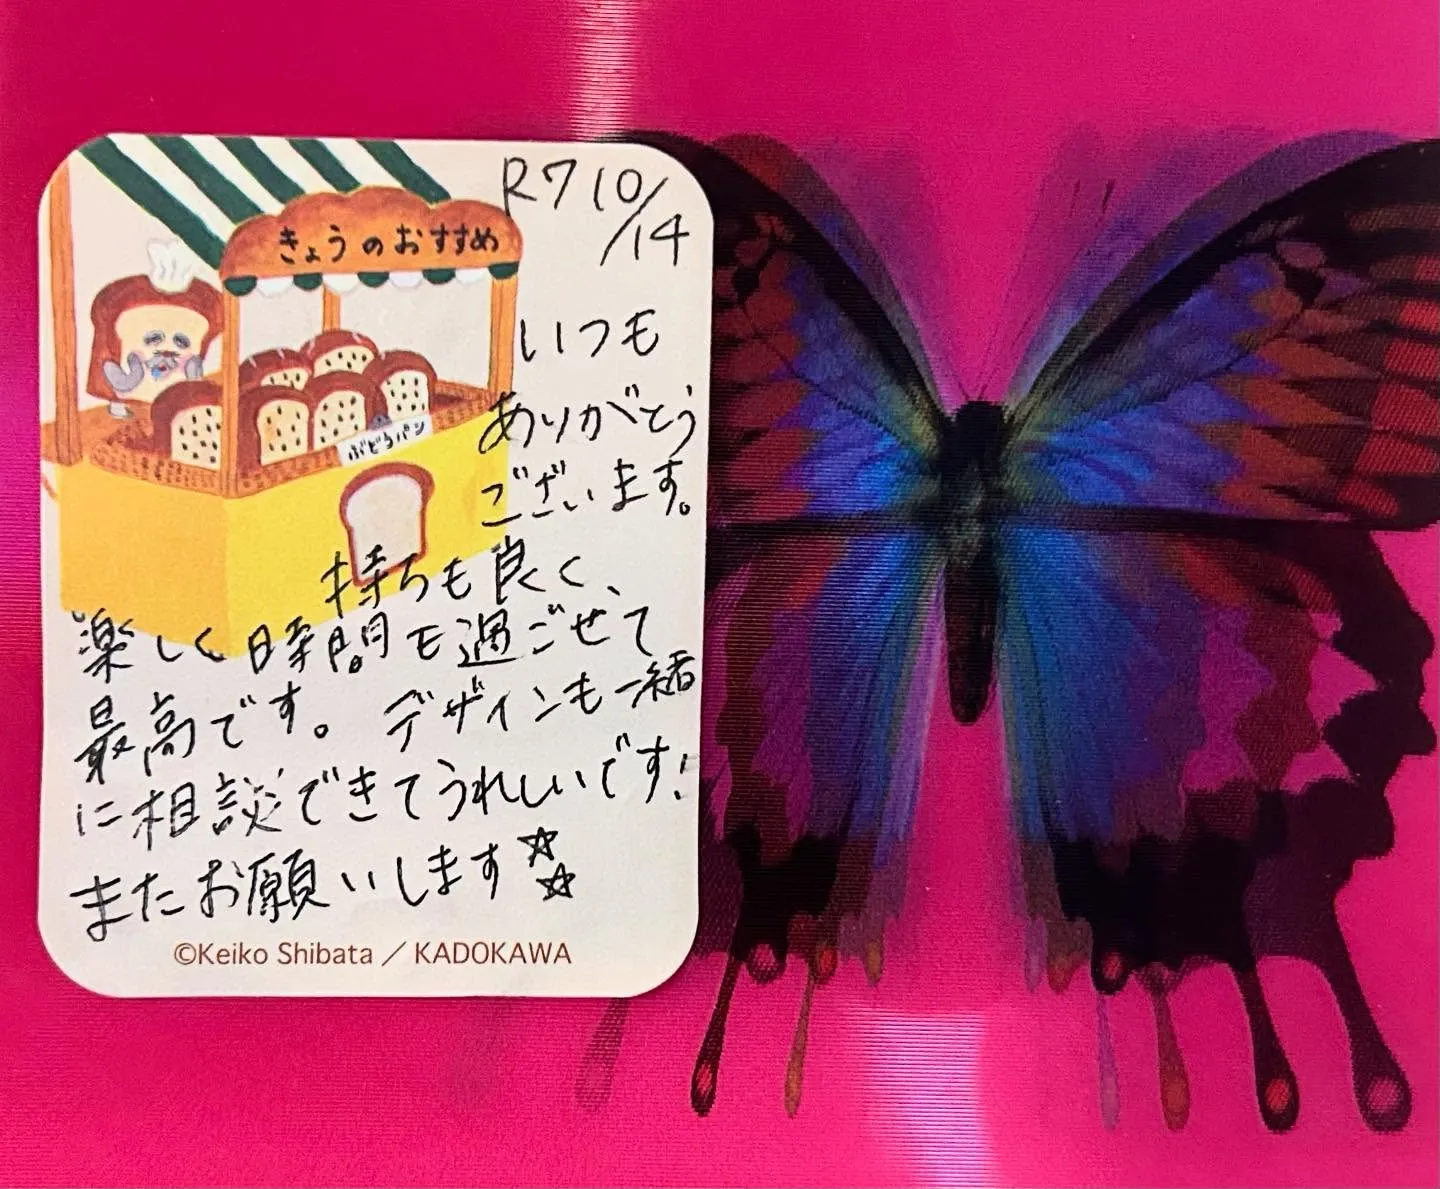 R7 10/14
きょうのおすすめ
いつも
ありがとう
ございます。
ぶどうパン
持ちも良く、
楽しく時間も過ごせて
最高です。デザインも一緒
に相談できてうれしいです!
またお願いします☆☆
©Keiko Shibata / KADOKAWA